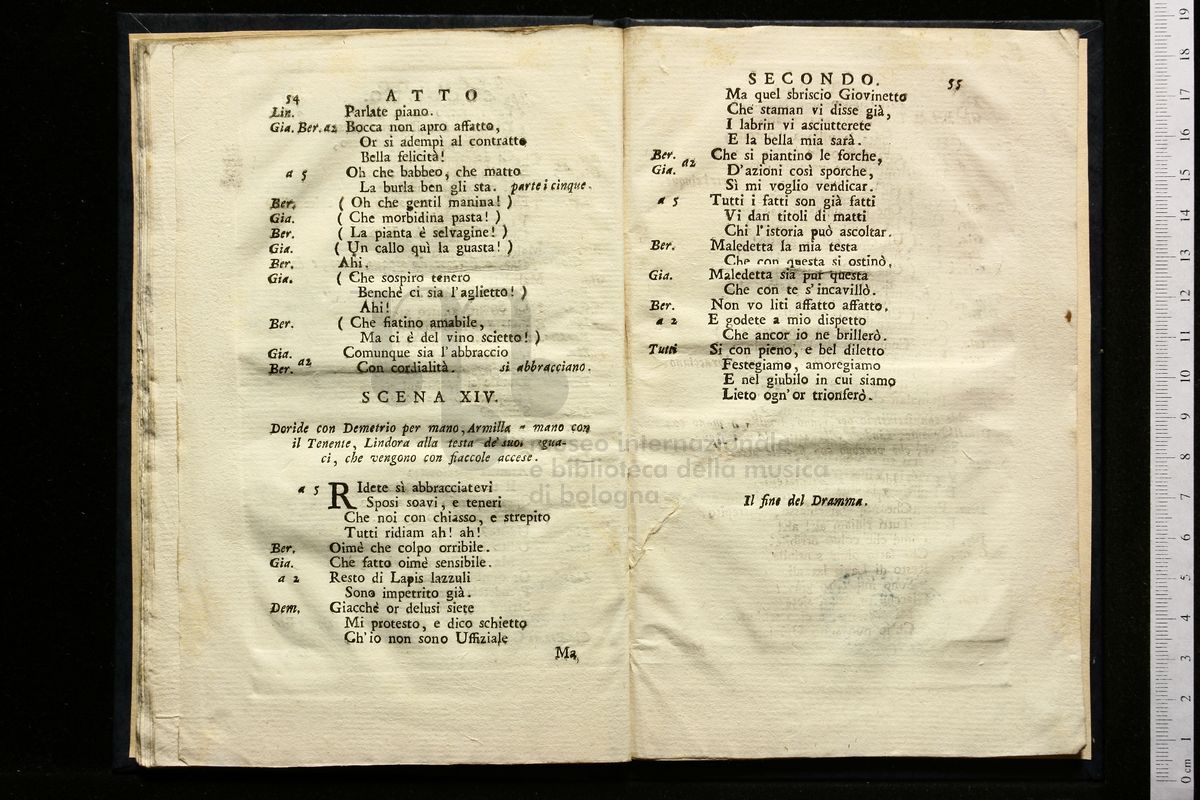 54 ATTO
Lin. Parlate piano.
Gia. Ber. a2 Bocca non apro affatto,
Or si adempì al contratto
Bella felicità!
a 5 Oh che babbeo, che matto
La burla ben gli sta. parte i cinque.
Ber. ( Oh che gentil manina! )
Gia. ( Che morbidina pasta! )
Ber. ( La pianta è selvagine! )
Gia. ( Un callo quì la guasta! )
Ber. Ahi.
Gia. ( Che sospiro tenero
Benchè ci sia l'aglietto! )
Ahi!
Ber. ( Che fiatino amabile,
Ma ci è del vino scietto! )
Gia. Comunque sia l'abbraccio
Ber. a2 Con cordialità. si abbracciano.
SCENA XIV.
Doride con Demetrio per mano, Armilla a mano con
il Tenente, Lindora alla testa de' suoi segua-
ci, che vengono con fiaccole accese.
a 5 RIdete sì abbracciatevi
Sposi soavi, e teneri
Che noi con chiasso, e strepito
Tutti ridiam ah! ah!
Ber. Oimè che colpo orribile.
Gia. Che fatto oimè sensibile.
a 2 Resto di Lapis lazzuli
Sono impetrito già.
Dem. Giacchè or delusi siete
Mi protesto, e dico schietto
Ch'io non sono Uffiziale
Ma
SECONDO. 55
Ma quel sbriscio Giovinetto
Che staman vi disse già,
I labrin vi asciutterete
E la bella mia sarà.
Ber. a2 Che si piantino le forche,
Gia. D'azioni così sporche,
Sì mi voglio vendicar.
a 5 Tutti i fatti son già fatti
Vi dan titoli di matti
Chi l'istoria può ascoltar.
Ber. Maledetta la mia testa
Che con questa si ostinò,
Gia. Maledetta sia pur questa
Che con te s'incavillò.
Ber. Non vo liti affatto affatto,
a 2 E godete a mio dispetto
Che ancor io ne brillerò.
Tutti Si con pieno, e bel diletto
Festegiamo, amoregiamo
E nel giubilo in cui siamo
Lieto ogn'or trionferò.
Il fine del Dramma.
museo internazionale
e biblioteca della musica
di bologna
0 cm 1 2 3 4 5 6 7 8 9 10 11 12 13 14 15 16 17 18 19